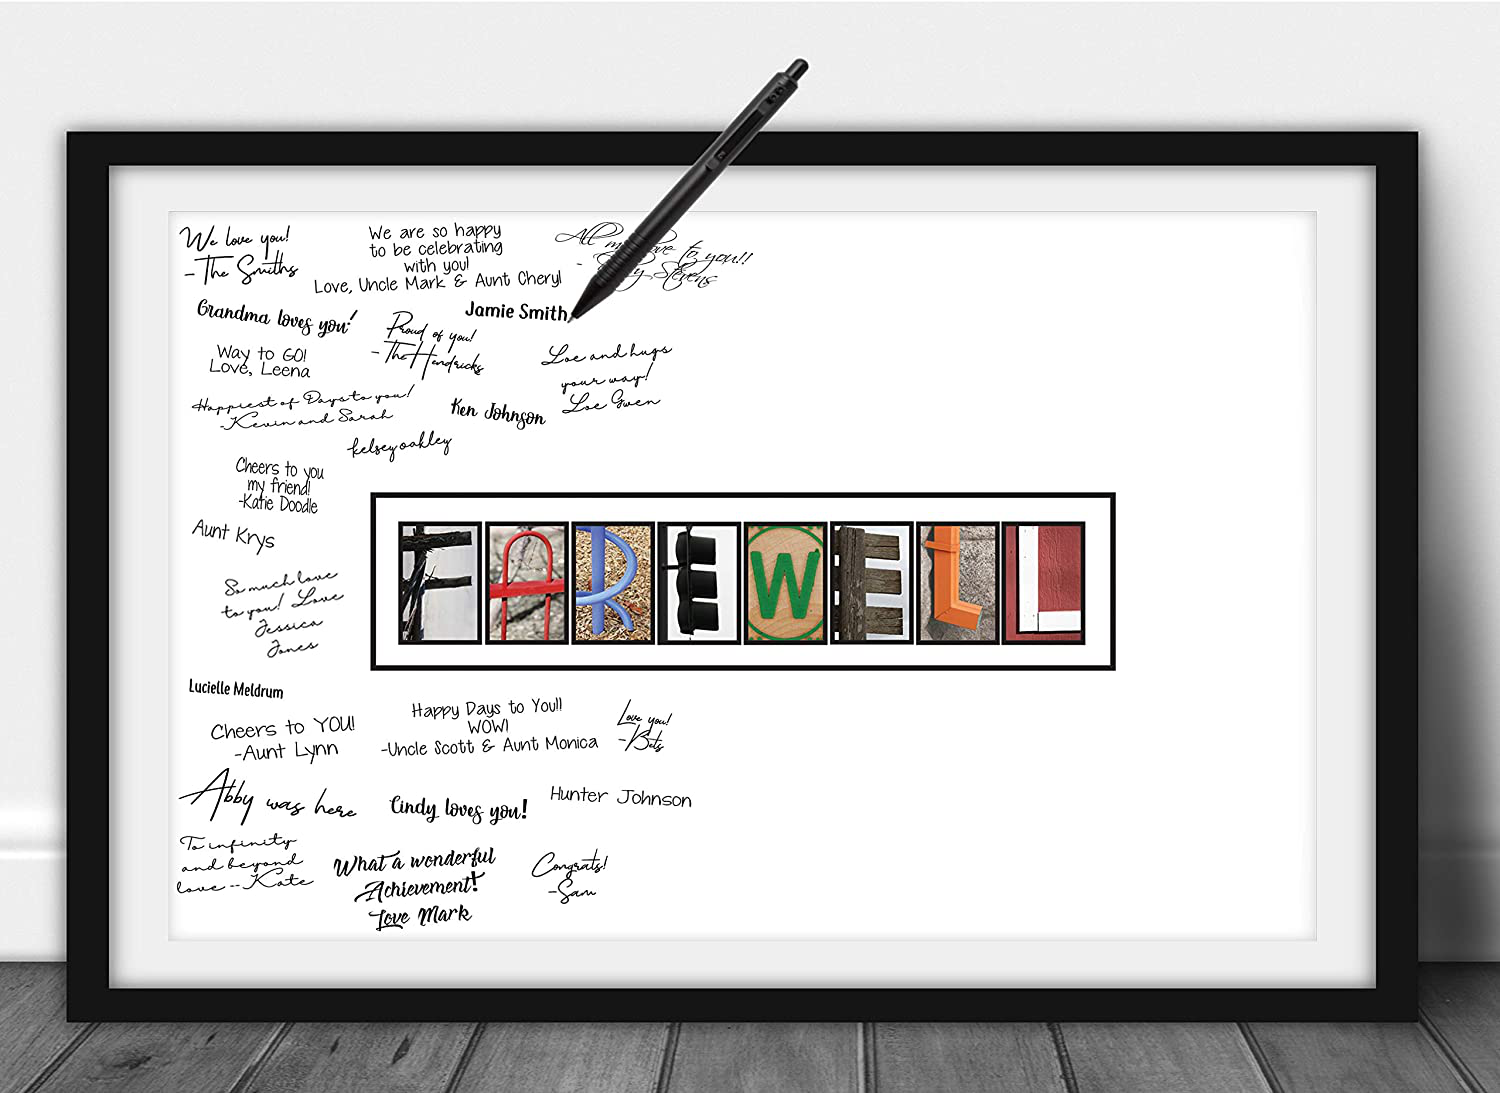 We love you!
- The Smiths
We are so happy
to be celebrating
with you!
Love, Uncle Mark & Aunt Cheryl
All my love to you!!
- Stevens
Grandma loves you!
Jamie Smith
Proud of you!
- The Hendricks
Way to GO!
Love, Leena
Loe and hugs
your way!
Loe Gwen
Happiest of Days to you!
-Kevin and Sarah
Ken Johnson
kelsey oakley
Cheers to you
my friend!
-Katie Doodle
Aunt Krys
FAREWELL
So much love
to you! Love
Jessica
Jones
Lucielle Meldrum
Cheers to YOU!
-Aunt Lynn
Happy Days to You!!
WOW!
-Uncle Scott & Aunt Monica
Love you!
-Bets
Abby was here
Cindy loves you!
Hunter Johnson
To infinity
and beyond
love -- Kate
What a wonderful
Achievement!
Love Mark
Congrats!
-Sam